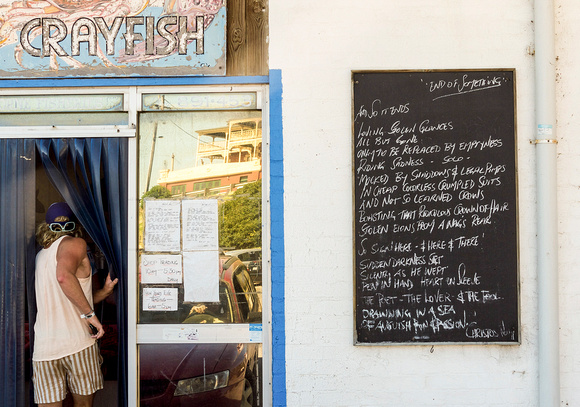 CRAYFISH
"END OF SOMETHING"
AND SO IT ENDS
LOVING STOLEN GLANCES
ALL BUT GONE
ONLY TO BE REPLACED BY EMPTYNESS
RIDING SADNESS - SOLO -
MOCKED BY SHADOWS & LEGAL PIMPS
IN CHEAP COLORLESS CRUMPLED SUITS
AND NOT SO LEARNED CROWS
BOASTING THAT RIDICULOUS CROWN OF HAIR
STOLEN FROM A NAG'S REAR
SO SIGN HERE - & HERE & THERE
SUDDEN DARKNESS SET
SILENTLY AS HE WEPT
PEN IN HAND HEART ON SLEEVE
THE POET - THE LOVER - & THE FOOL
DRAWNING IN A SEA
OF ANGUISH PAIN & PASSION!
CHRISTOS